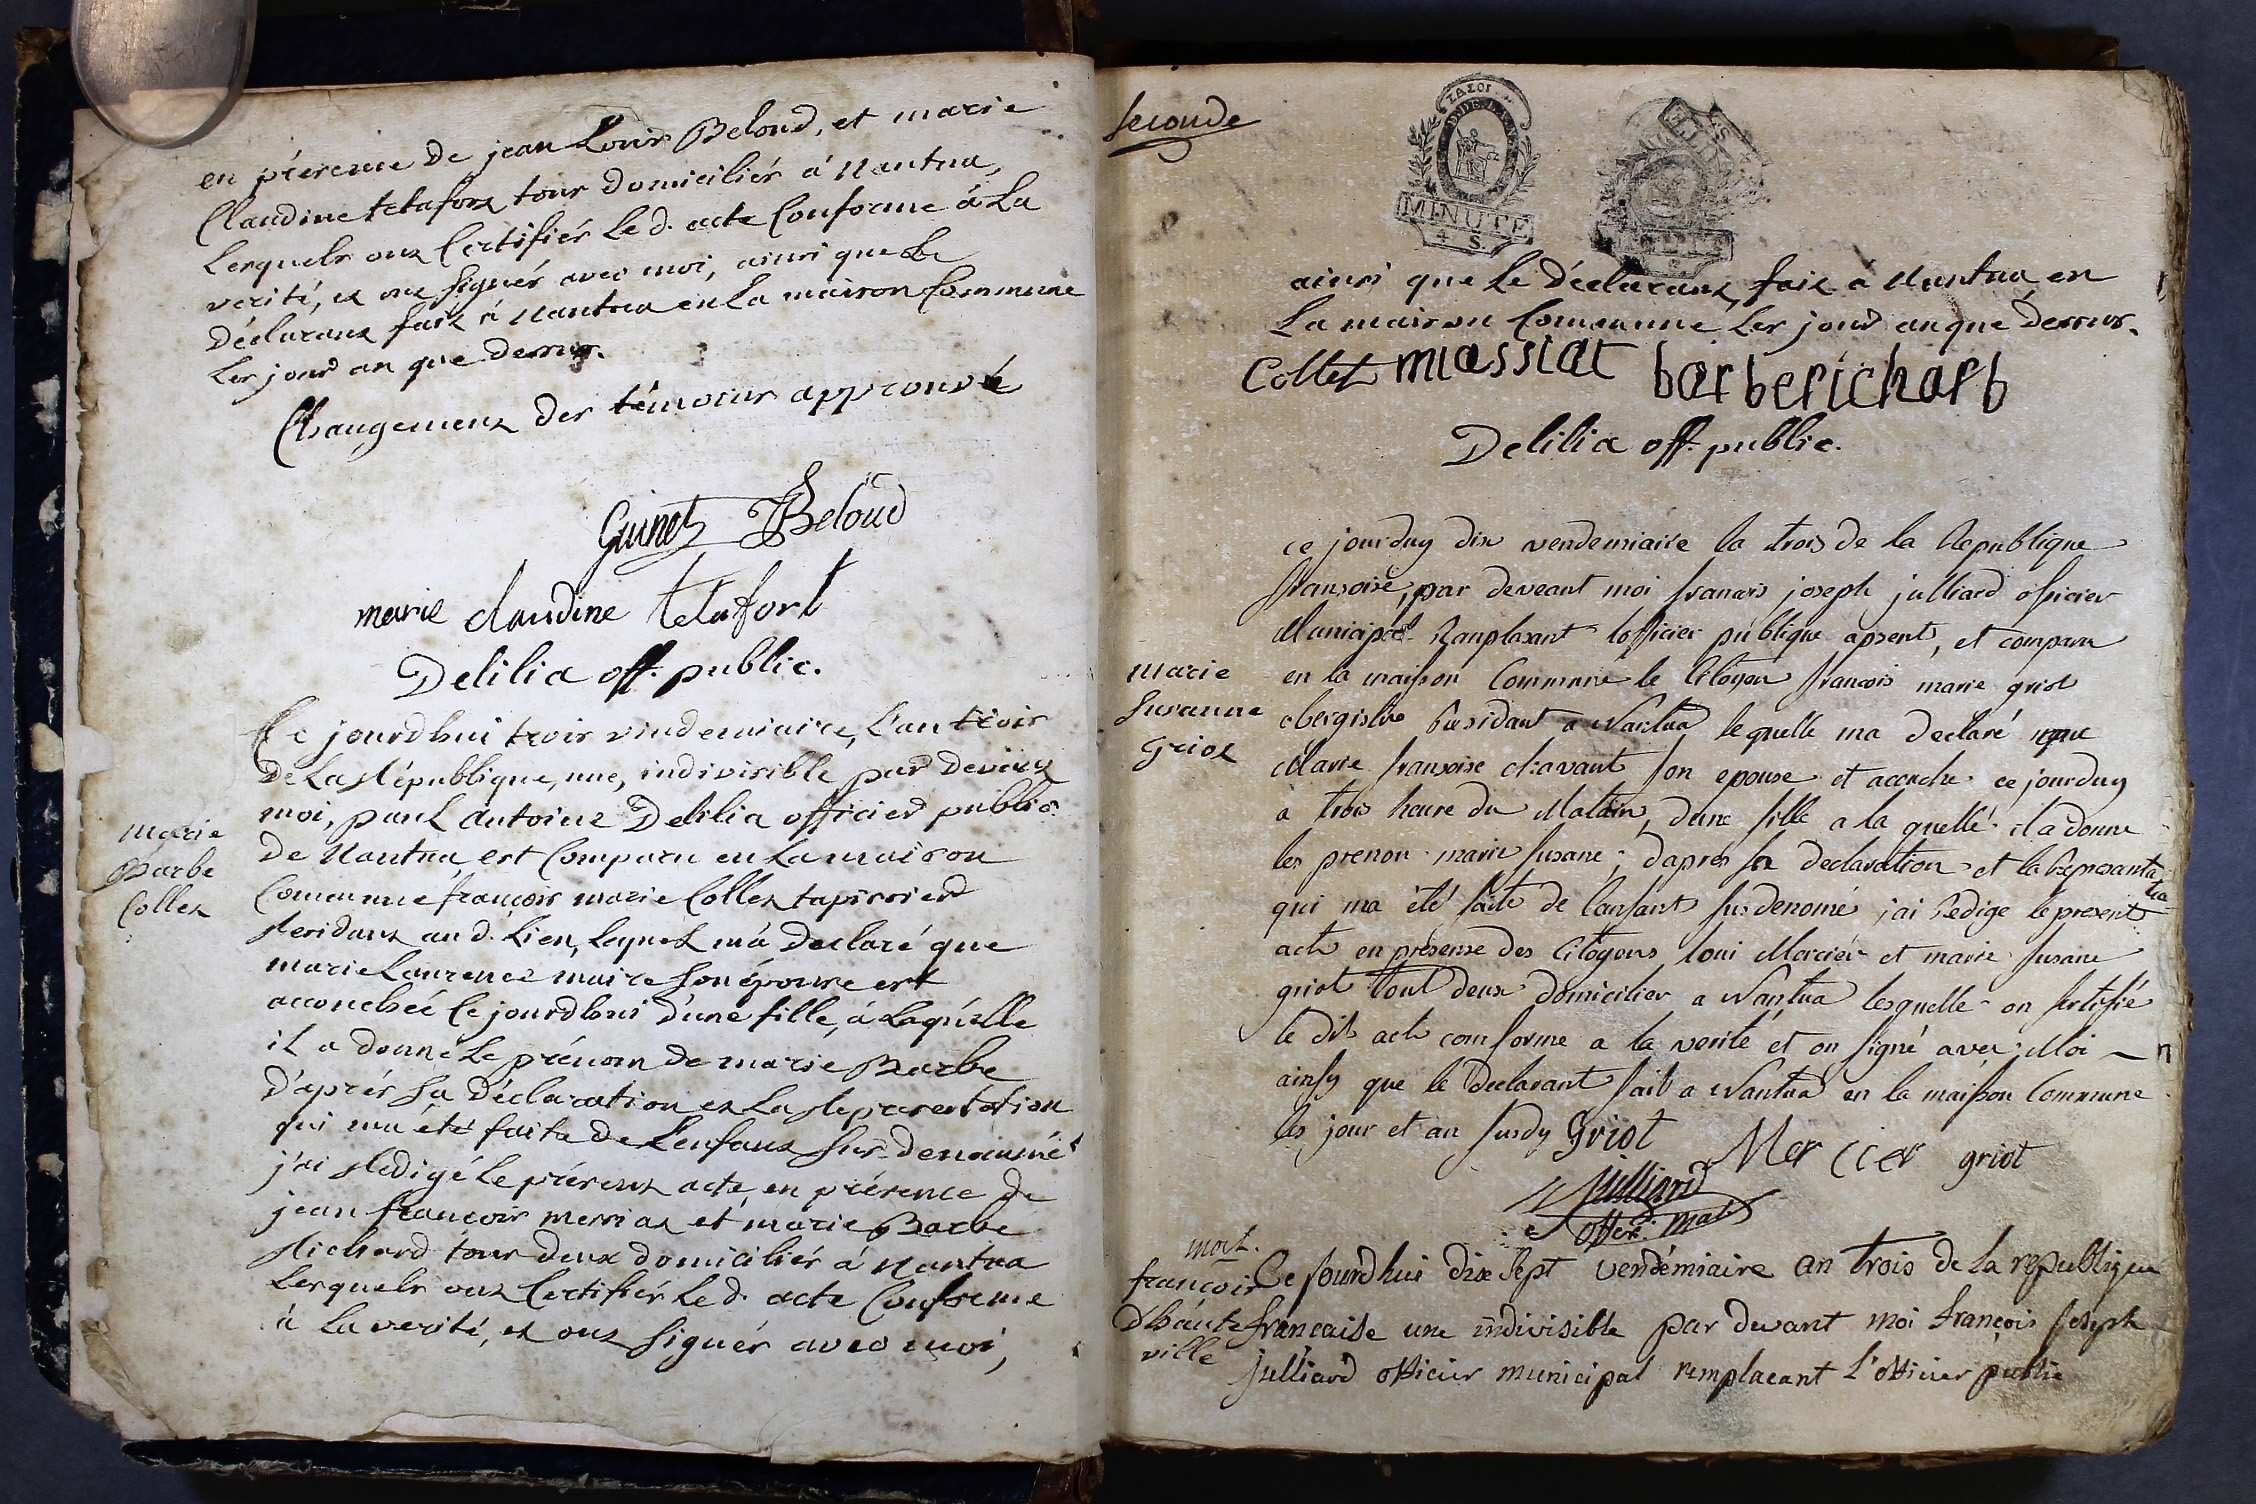 en présence de jean Louis Beloud, et marie
Claudine tetafort tous domiciliés à Nantua,
Lesquels ont Certifiés Led. acte Conforme à La
verité, et ont signés avec moi, ainsi que Le
Déclarant fait à Nantua en La maison Commune
Les jour an que dessus.
Changement des témoins approuvé
Guinet Beloud
marie claudine tetafort
Delilia off. public.
marie
Barbe
Collet
Ce jourdhui trois vindemiaire, L'an trois
De La République, une, indivisible par devant
moi, paul Antoine Delilia officier public
De Nantua, est Comparu en La maison
Commune françois marie Collet tapissier
Residant aud. Lieu, Lequel m'a Declaré que
marie Laurence maire son épouse est
accouchée Ce jourdhui d'une fille, à Laquelle
il a donné Le prénom de marie Barbe
D'après sa Déclaration et La Représentation
qui m'a été faite de L'enfant sus-denommé
j'ai Redigé Le présent acte, en présence de
jean françois messiat et marie Barbe
Richard tous deux domiciliés à Nantua
Lesquels ont Certifiés Led. acte Conforme
à La verité, et ont signés avec moi,
seconde
MINUTE
4 S.
ainsi que Le Déclarant, fait à Nantua en
La maison Commune Les jour an que dessus.
Collet massiat barberichard
Delilia off. public.
marie
susanne
Griot
ce jourduy dix vendemiaire la trois de la Republique
fransoise, par deveant moi francois joseph julliard oficier
Municipal Ranplasant lofficier publique apsent, et comparu
en la maison Commune le Citoyen francois marie griot
obergiste Residant a Nantua lequelle ma declaré que
Marie fransoise chavant son epouse et acouche ce jourduy
a trois heure du Matin, dune fille a la quelle il a donne
les prenon marie susane; daprés sa declaration et la Represanta
tia
qui ma été faite de lanfant susdenomé jai Redige le present
acte en presense des Citoyens loui Mercier et marie susane
griot tout deux domicilier a Nantua lesquelle on sertifié
le dit acte comforme a la verité et on signé avec Moi
ainsy que le declarant fait a Nantua en la maison Commune
les jour et an susdy Griot Mercier griot
Julliard
offcr. mal
mort.
françois
d'haute
ville
Ce jourdhui dix sept vendémiaire an trois de la republique
francaise une indivisible par devant moi françois joseph
julliard officier municipal remplacant l'officier public